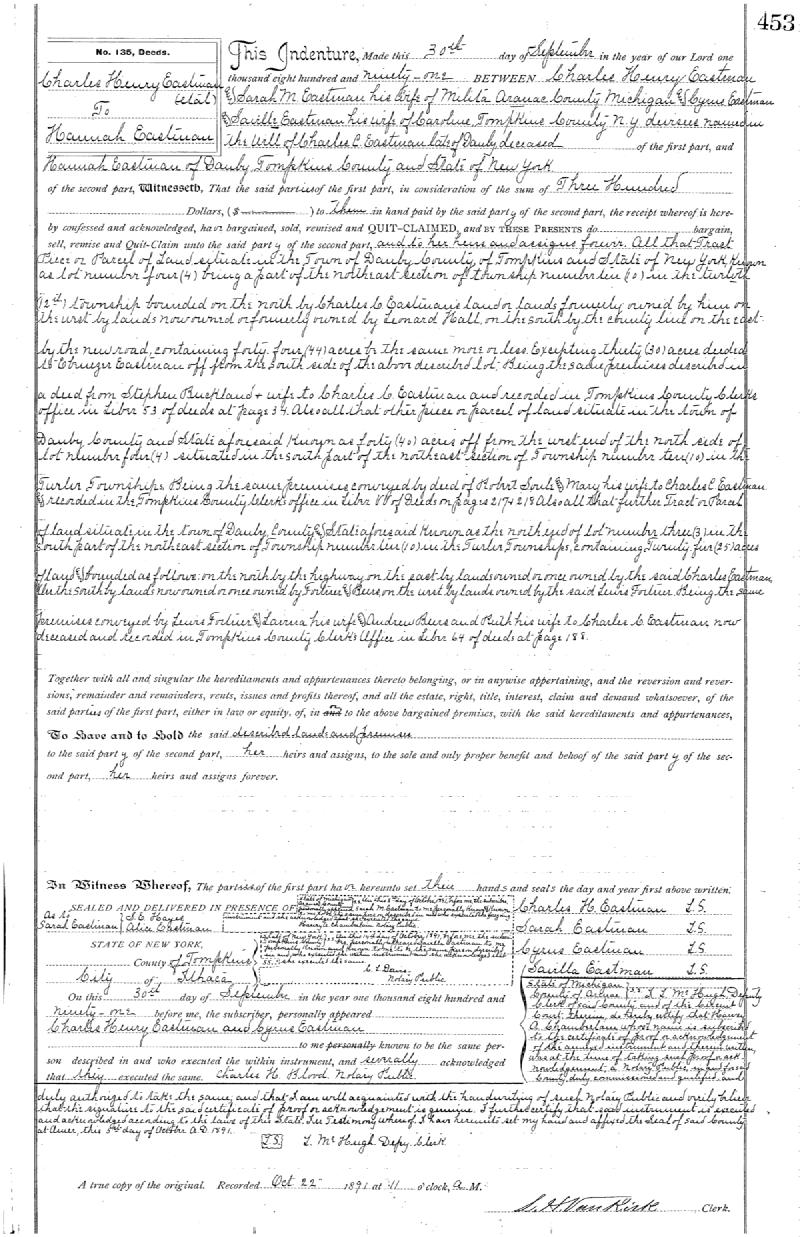 453
No. 135, Deeds.
Charles Henry Eastman
(et al)
To
Hannah Eastman
This Indenture, Made this 30th day of September in the year of our Lord one
thousand eight hundred and ninety-one BETWEEN Charles Henry Eastman
& Sarah M. Eastman his wife of Melita Aranac County Michigan & Cyrus Eastman
& Saville Eastman his wife of Caroline, Tompkins County N.Y. devisees named in
the Will of Charles C. Eastman late of Danby deceased of the first part, and
Hannah Eastman of Danby, Tompkins County and State of New York
of the second part, Witnesseth, That the said parties of the first part, in consideration of the sum of Three Hundred
Dollars, ($ ) to them in hand paid by the said party of the second part, the receipt whereof is here-
by confessed and acknowledged, have bargained, sold, remised and QUIT-CLAIMED, and BY THESE PRESENTS do bargain,
sell, remise and Quit-Claim unto the said party of the second part, and to her heirs and assigns forever. All that Tract
Piece or Parcel of Land situate in the Town of Danby County of Tompkins and State of New York, Known
as lot number four (4) being a part of the northeast section of township number ten (10) in the twelvth
(12th) township bounded on the north by Charles C Eastman's land or lands formerly owned by him on
the west by lands now owned or formerly owned by Leonard Hall, on the south by the county line on the east
by the new road, containing forty four (44) acres be the same more or less. Excepting thirty (30) acres deeded
to Ebenezer Eastman off from the south side of the above described lot. Being the same premises described in
a deed from Stephen Buckland & wife to Charles C. Eastman and recorded in Tompkins County Clerks
office in Liber 53 of deeds at page 34. Also all that other piece or parcel of land situate in the town of
Danby County and State aforesaid Known as forty (40) acres off from the west end of the north side of
lot number four (4) situated in the south part of the northeast section of Township number ten (10) in the
Twelve Townships. Being the same premises conveyed by deed of Robert Soule & Mary his wife to Charles C Eastman
& recorded in the Tompkins County Clerks office in Liber VV of Deeds on pages 217 & 218 Also all that further Tract or Parcel
of land situate in the town of Danby, County & State aforesaid Known as the north end of lot number three (3) in the
south part of the northeast section of Township number ten (10) in the Twelve Townships, containing Twenty five (25) acres
of land & bounded as follows: on the north by the highway on the east by lands owned or once owned by the said Charles Eastman,
On the south by lands now owned or once owned by Fortier & Beers, on the west by lands owned by the said Lewis Fortier. Being the same
premises conveyed by Lewis Fortier & Lavina his wife & Andrew Beers and Ruth his wife to Charles C Eastman now
deceased and recorded in Tompkins County Clerk's Office in Liber 64 of deeds at page 188.
Together with all and singular the hereditaments and appurtenances thereto belonging, or in anywise appertaining, and the reversion and rever-
sions, remainder and remainders, rents, issues and profits thereof, and all the estate, right, title, interest, claim and demand whatsoever, of the
said parties of the first part, either in law or equity, of, in and to the above bargained premises, with the said hereditaments and appurtenances,
To Have and to Hold the said described lands and premises
to the said party of the second part, her heirs and assigns, to the sole and only proper benefit and behoof of the said party of the sec-
ond part, her heirs and assigns forever.
In Witness Whereof, The parties of the first part have hereunto set their hands and seals the day and year first above written.
SEALED AND DELIVERED IN PRESENCE OF
As to
Sarah Eastman
S. E. Hayes
Alice Eastman
Henry A Chamberlain Notary Public
Charles H. Eastman L.S.
Sarah Eastman L.S.
Cyrus Eastman L.S.
Savilla Eastman L.S.
C. L. Davis
Notary Public
STATE OF NEW YORK,
County of Tompkins
City of Ithaca
On this 30th day of September in the year one thousand eight hundred and
ninety-one before me, the subscriber, personally appeared
Charles Henry Eastman and Cyrus Eastman
to me personally known to be the same per-
son described in and who executed the within instrument, and severally acknowledged
that they executed the same. Charles H. Blood, Notary Public
State of Michigan
County of Arenac SS I, L. McHugh, Deputy
Clerk of said County and of the Circuit
Court therein, do hereby certify that Henry
A. Chamberlain whose name is subscribed
to the certificate of proof or acknowledgement
of the annexed instrument and therein written,
was at the time of taking such proof or ack-
nowledgement, a Notary Public, in and for said
County, duly commissioned and qualified, and
duly authorized to take the same; and that I am well acquainted with the handwriting of such Notary Public and verily believe
that the signature to the said certificate of proof or acknowledgement is genuine. I further certify that said instrument is executed
and acknowledged according to the laws of this State. In Testimony whereof I have hereunto set my hand and affixed the Seal of said County
at Omer, this 5th day of October A.D. 1891.
L.S. L. McHugh Depy. Clerk
A true copy of the original. Recorded Oct 22 1891 at 11 o'clock, A.M.
L. H. Van Kirk Clerk.